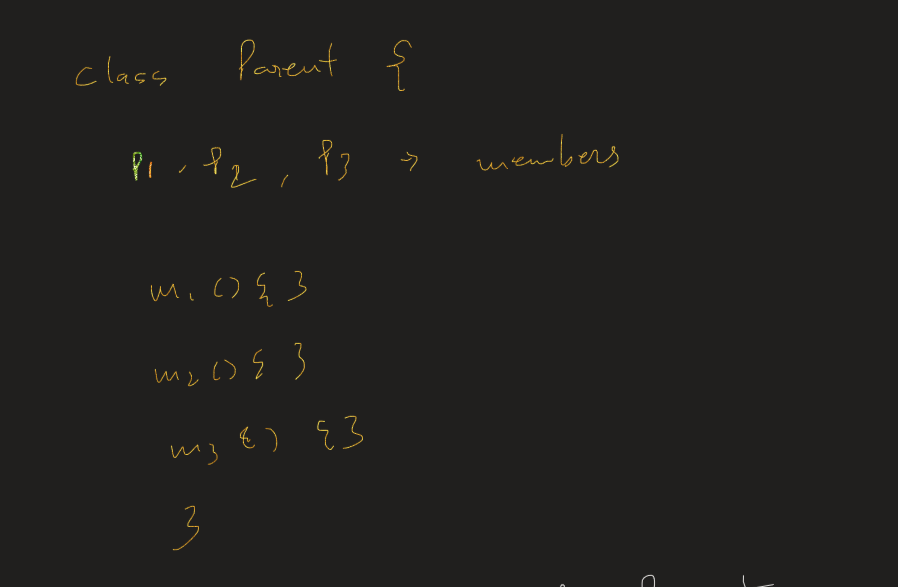 class Parent {
P1, P2, P3 → members
m1 () { }
m2 () { }
m3 () { }
}